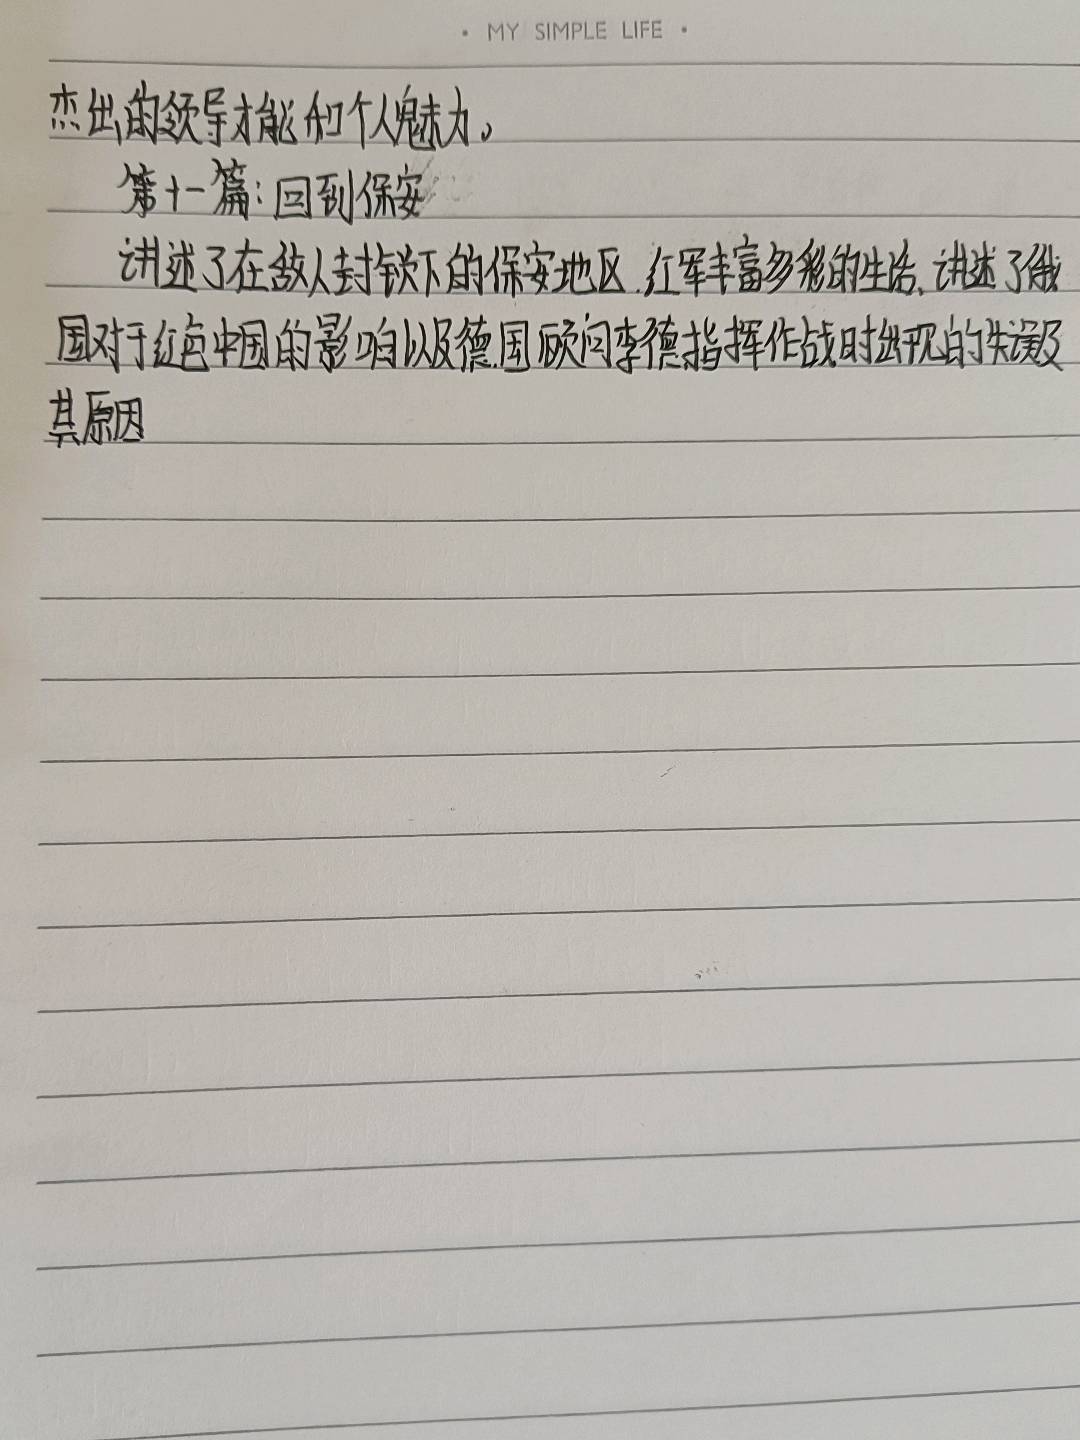 • MY SIMPLE LIFE •
杰出的领导才能和个人魅力。
第十一篇：回到保安
讲述了在敌人封锁下的保安地区.红军丰富多彩的生活、讲述了俄
国对于红色中国的影响以及德国顾问李德指挥作战时出现的失误及
其原因